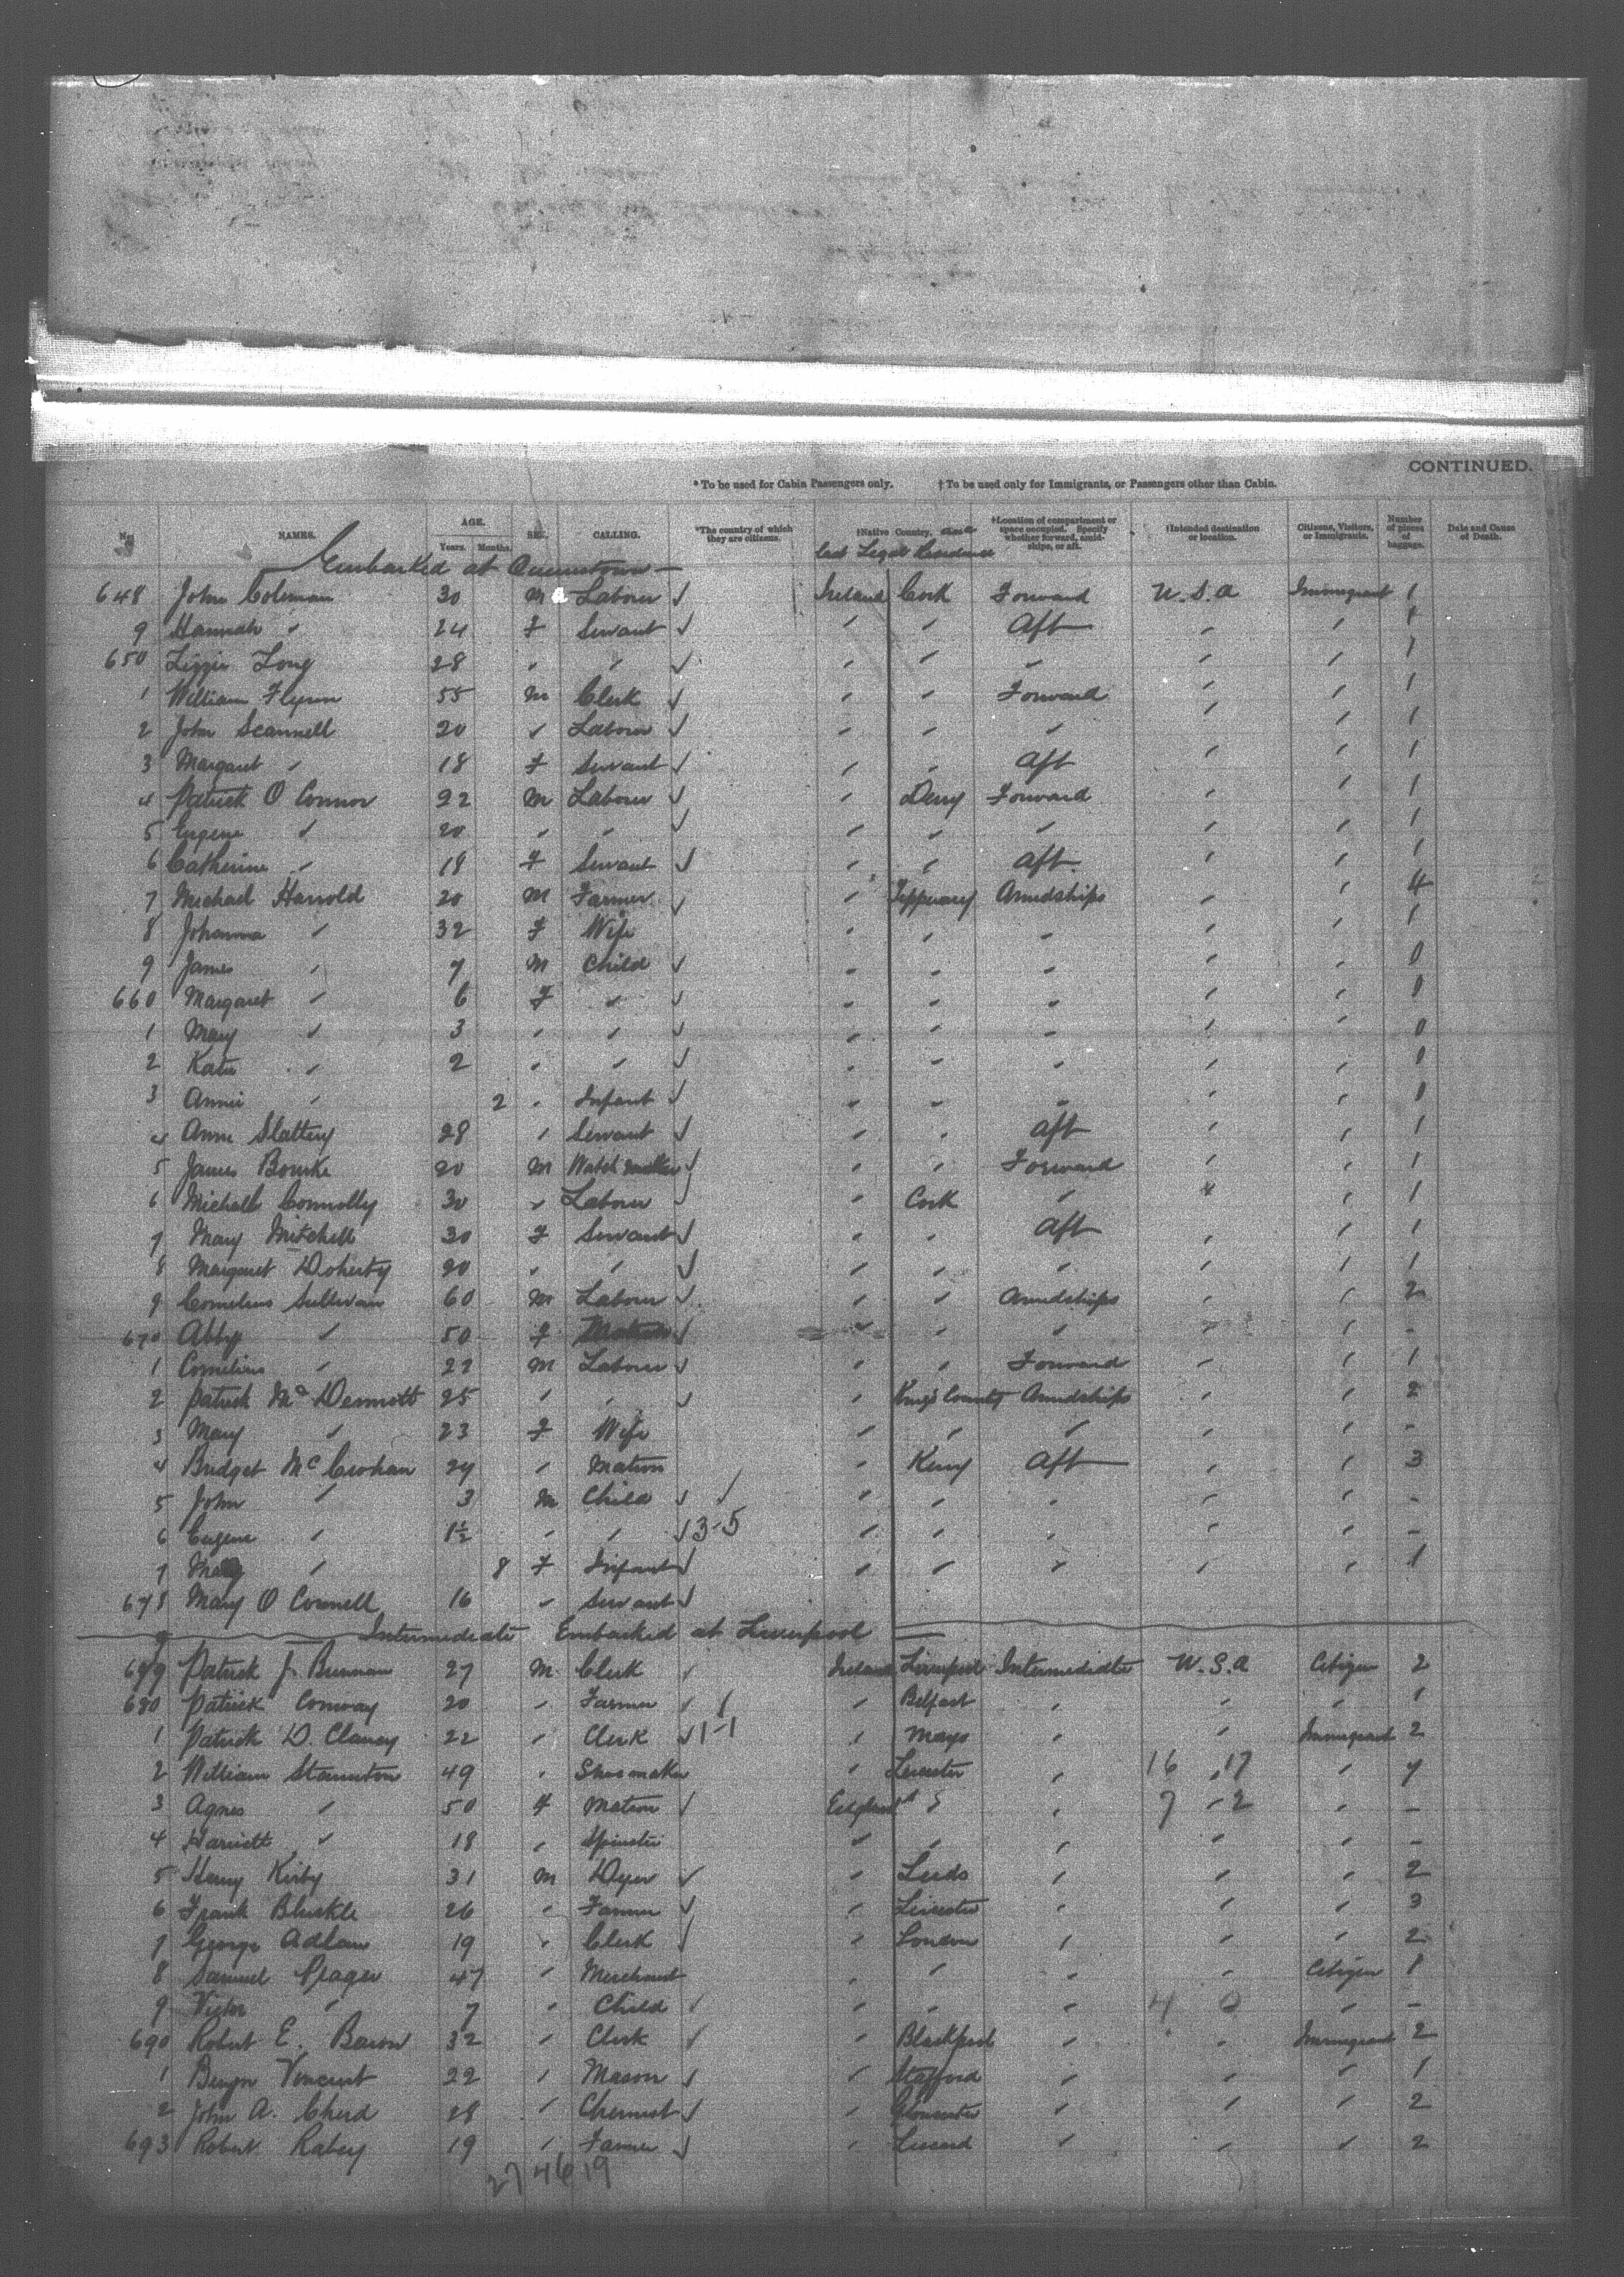 CONTINUED.
* To be used for Cabin Passengers only. † To be used only for Immigrants, or Passengers other than Cabin.
No. NAMES. AGE. Years. Months. SEX. CALLING. *The country of which they are citizens. †Native Country, last Legal Residence †Location of compartment or space occupied. Specify whether forward, amidships, or aft. †Intended destination or location. Citizens, Visitors, or Immigrants. Number of pieces of baggage. Date and Cause of Death.
Embarked at Queenstown —
648 John Coleman 30 M Laborer ✓ Ireland Cork Forward U.S.A Immigrant 1
9 Hannah " 24 F Servant ✓ " " Aft " " 1
650 Lizzie Long 28 " " ✓ " " " " " 1
1 William Flynn 55 M Clerk ✓ " " Forward " " 1
2 John Scannell 20 " Laborer ✓ " " " " " 1
3 Margaret " 18 F Servant ✓ " " Aft " " 1
4 Patrick O Connor 22 M Laborer ✓ " Derry Forward " " 1
5 Eugene " 20 " " ✓ " " " " " 1
6 Catherine " 18 F Servant ✓ " " Aft " " 1
7 Michael Harrold 20 M Farmer ✓ " Tipperary Amidships " " 4
8 Johanna " 32 F Wife " " " " " 1
9 James " 7 M Child ✓ " " " " " 0
660 Margaret " 6 F " ✓ " " " " " 0
1 Mary " 3 " " ✓ " " " " " 0
2 Katie " 2 " " ✓ " " " " " 0
3 Annie " 2 " Infant ✓ " " " " " 0
4 Anne Slattery 28 " Servant ✓ " " Aft " " 1
5 James Bourke 20 M Watch maker ✓ " " Forward " " 1
6 Michall Connolly 30 " Laborer ✓ " Cork " " " 1
7 Mary Mitchell 30 F Servant ✓ " " Aft " " 1
8 Margaret Doherty 20 " " ✓ " " " " " 1
9 Cornelius Sullivan 60 M Laborer ✓ " " Amidships " " 2
670 Abby " 50 F Matron ✓ " " " " " -
1 Cornelius " 22 M Laborer ✓ " " Forward " " 1
2 Patrick McDermott 25 " " ✓ " King's County Amidships " " 2
3 Mary " 23 F Wife " " " " " -
4 Bridget McCrohan 24 " Matron " Kerry Aft " " 3
5 John " 3 M Child ✓ " " " " " -
6 Eugene " 1½ " " ✓ 3-5 " " " " " -
7 Mary " 8 F Infant ✓ " " " " " 1
678 Mary O Connell 16 " Servant ✓
Intermediate Embarked at Liverpool
679 Patrick J. Brennan 27 M Clerk Ireland Liverpool Intermediate U.S.A Citizen 2
680 Patrick Conway 20 " Farmer " Belfast " " " 1
1 Patrick D. Clancy 22 " Clerk ✓ 1-1 " Mayo " " Immigrant 2
2 William Staunton 49 " Shoemaker " Leicester " 16 17 "
3 Agnes " 50 F Matron England " 7 - 2 " -
4 Harriett " 18 " Spinster " " " " " -
5 Henry Kirby 31 M Dyer ✓ " Leeds " " " 2
6 Frank 26 " Farmer ✓ " Leicester " " " 3
7 George Adlam 19 " Clerk ✓ " London " " " 2
8 Samuel Prager 47 " Merchant " " " " Citizen 1
9 Victor " 7 " Child " " " 4 0 " -
690 Robert E. Baron 32 " Clerk " Blackpool " " Immigrant 2
1 Benjn Vincent 22 " Mason ✓ " Stafford " " " 1
2 John A. Cherd 28 " Chemist ✓ " Gloucester " " " 2
693 Robert Rabey 19 " Farmer ✓ " " " " 2
27 46 19